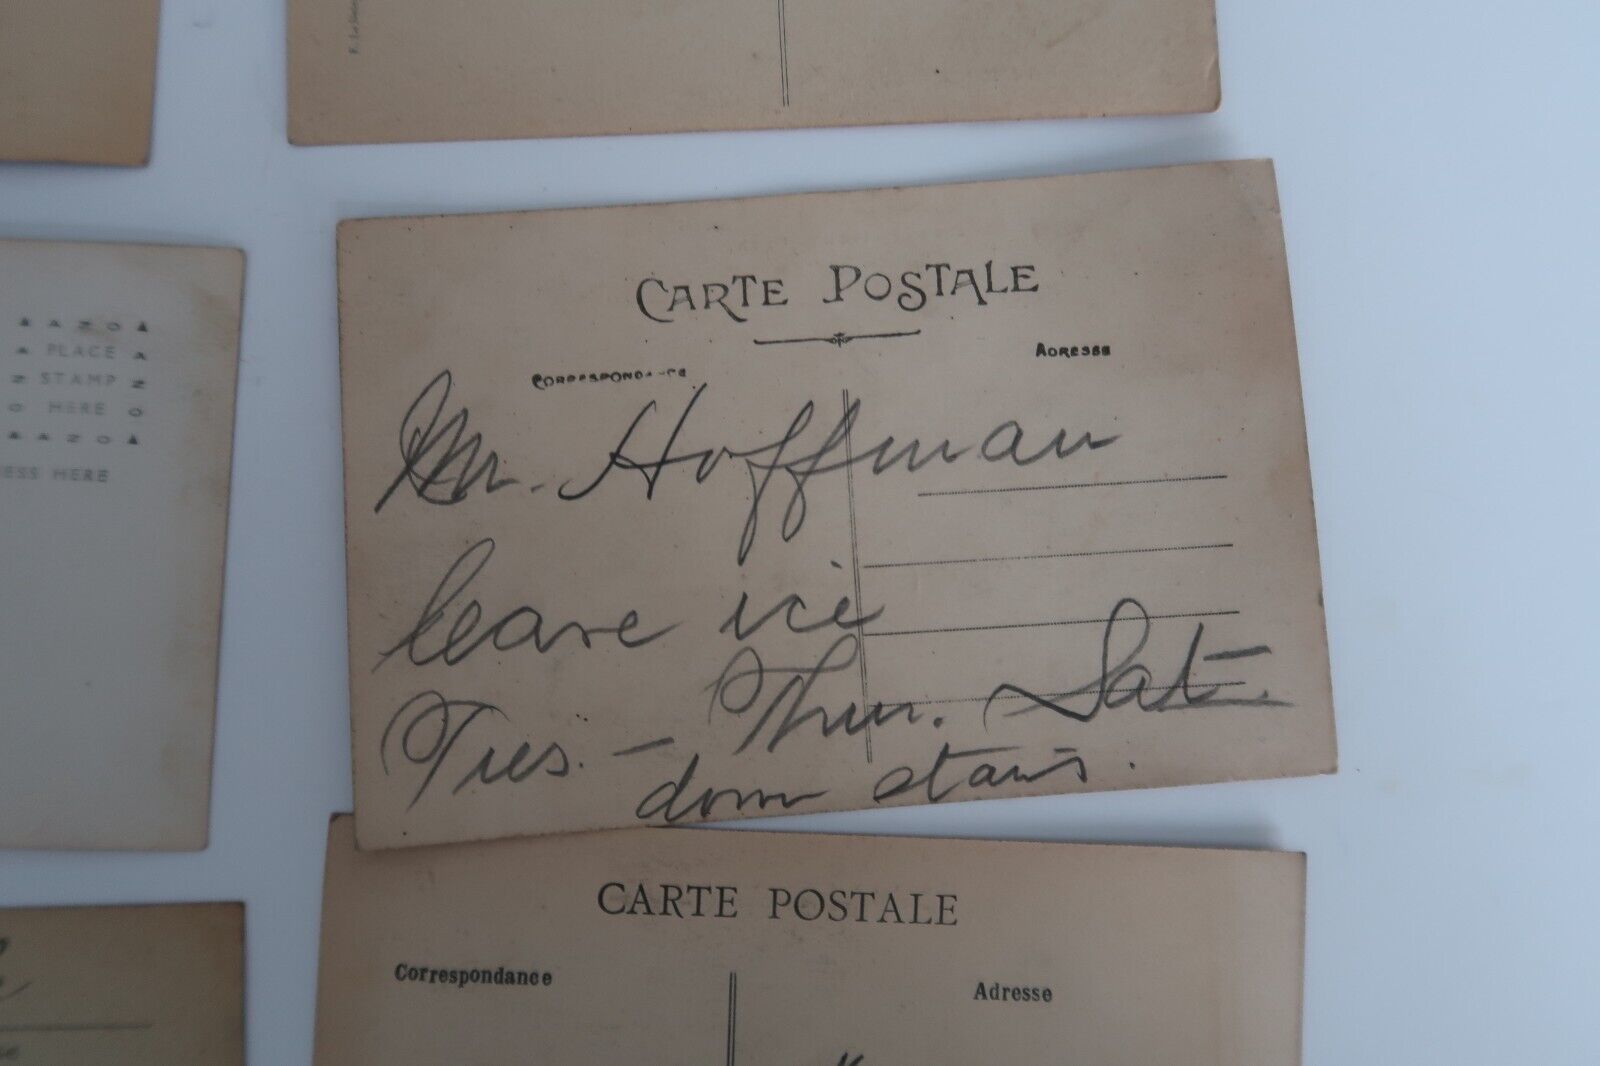 CARTE POSTALE
CORRESPONDANCE
ADRESSE
Mr. Hoffman
leave ice
Tues. – Thur. Sat.
down stairs.
A AZO A
PLACE
STAMP
HERE
AZO
ESS HERE
CARTE POSTALE
Correspondance
Adresse